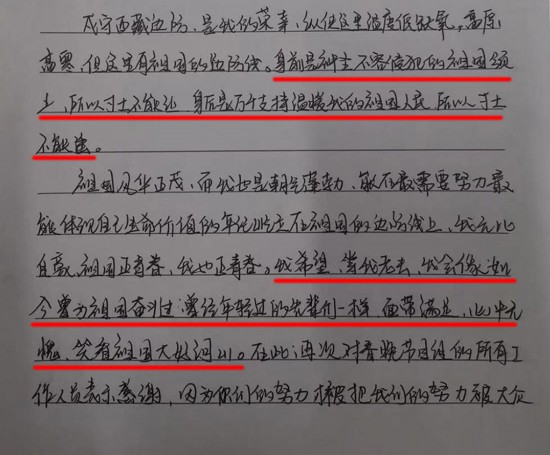 戍守西藏边防，是我的荣幸，纵使这里温度低缺氧，高原
高寒，但这里有祖国的边防线。身前是神圣不容侵犯的祖国领
土，所以寸土不能让，身后是万千支持温暖我的祖国人民，所以寸土
不能让。
祖国风华正茂，而我也是朝气蓬勃，能在最需要努力最
能体现自己生命价值的年纪站在祖国的边防线上，我为此
自豪，祖国正青春，我也正青春。我希望，当我老去，我会像如
今曾为祖国奋斗过曾经年轻过的先辈们一样，面带满足，心中无
愧，笑看祖国大好河山。在此再次对春晚节目组的所有工
作人员表示感谢，因为你们的努力才被把我们的努力被大众